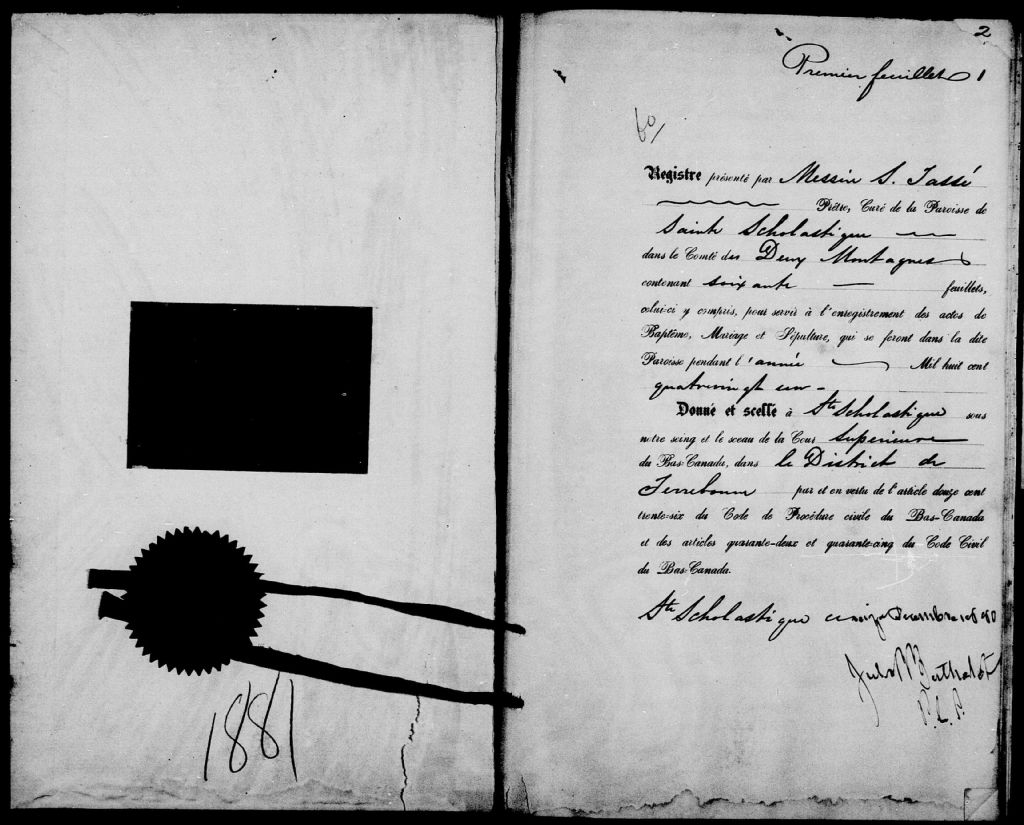 1881
2
Premier feuillet 1
60/
Registre présenté par Messire S. Tassé
Prêtre, Curé de la Paroisse de
Sainte Scholastique
dans le Comté des Deux Montagnes
contenant soixante feuillets,
celui-ci y compris, pour servir à l'enregistrement des actes de
Baptême, Mariage et Sépulture, qui se feront dans la dite
Paroisse pendant l'année Mil huit cent
quatrevingt un -
Donné et scellé à Ste Scholastique sous
notre seing et le sceau de la Cour Supérieure
du Bas-Canada, dans le District de
Terrebonne par et en vertu de l'article douze cent
trente-six du Code de Procédure civile du Bas-Canada
et des articles quarante-deux et quarante-cinq du Code Civil
du Bas-Canada.
Ste Scholastique Décembre 1880